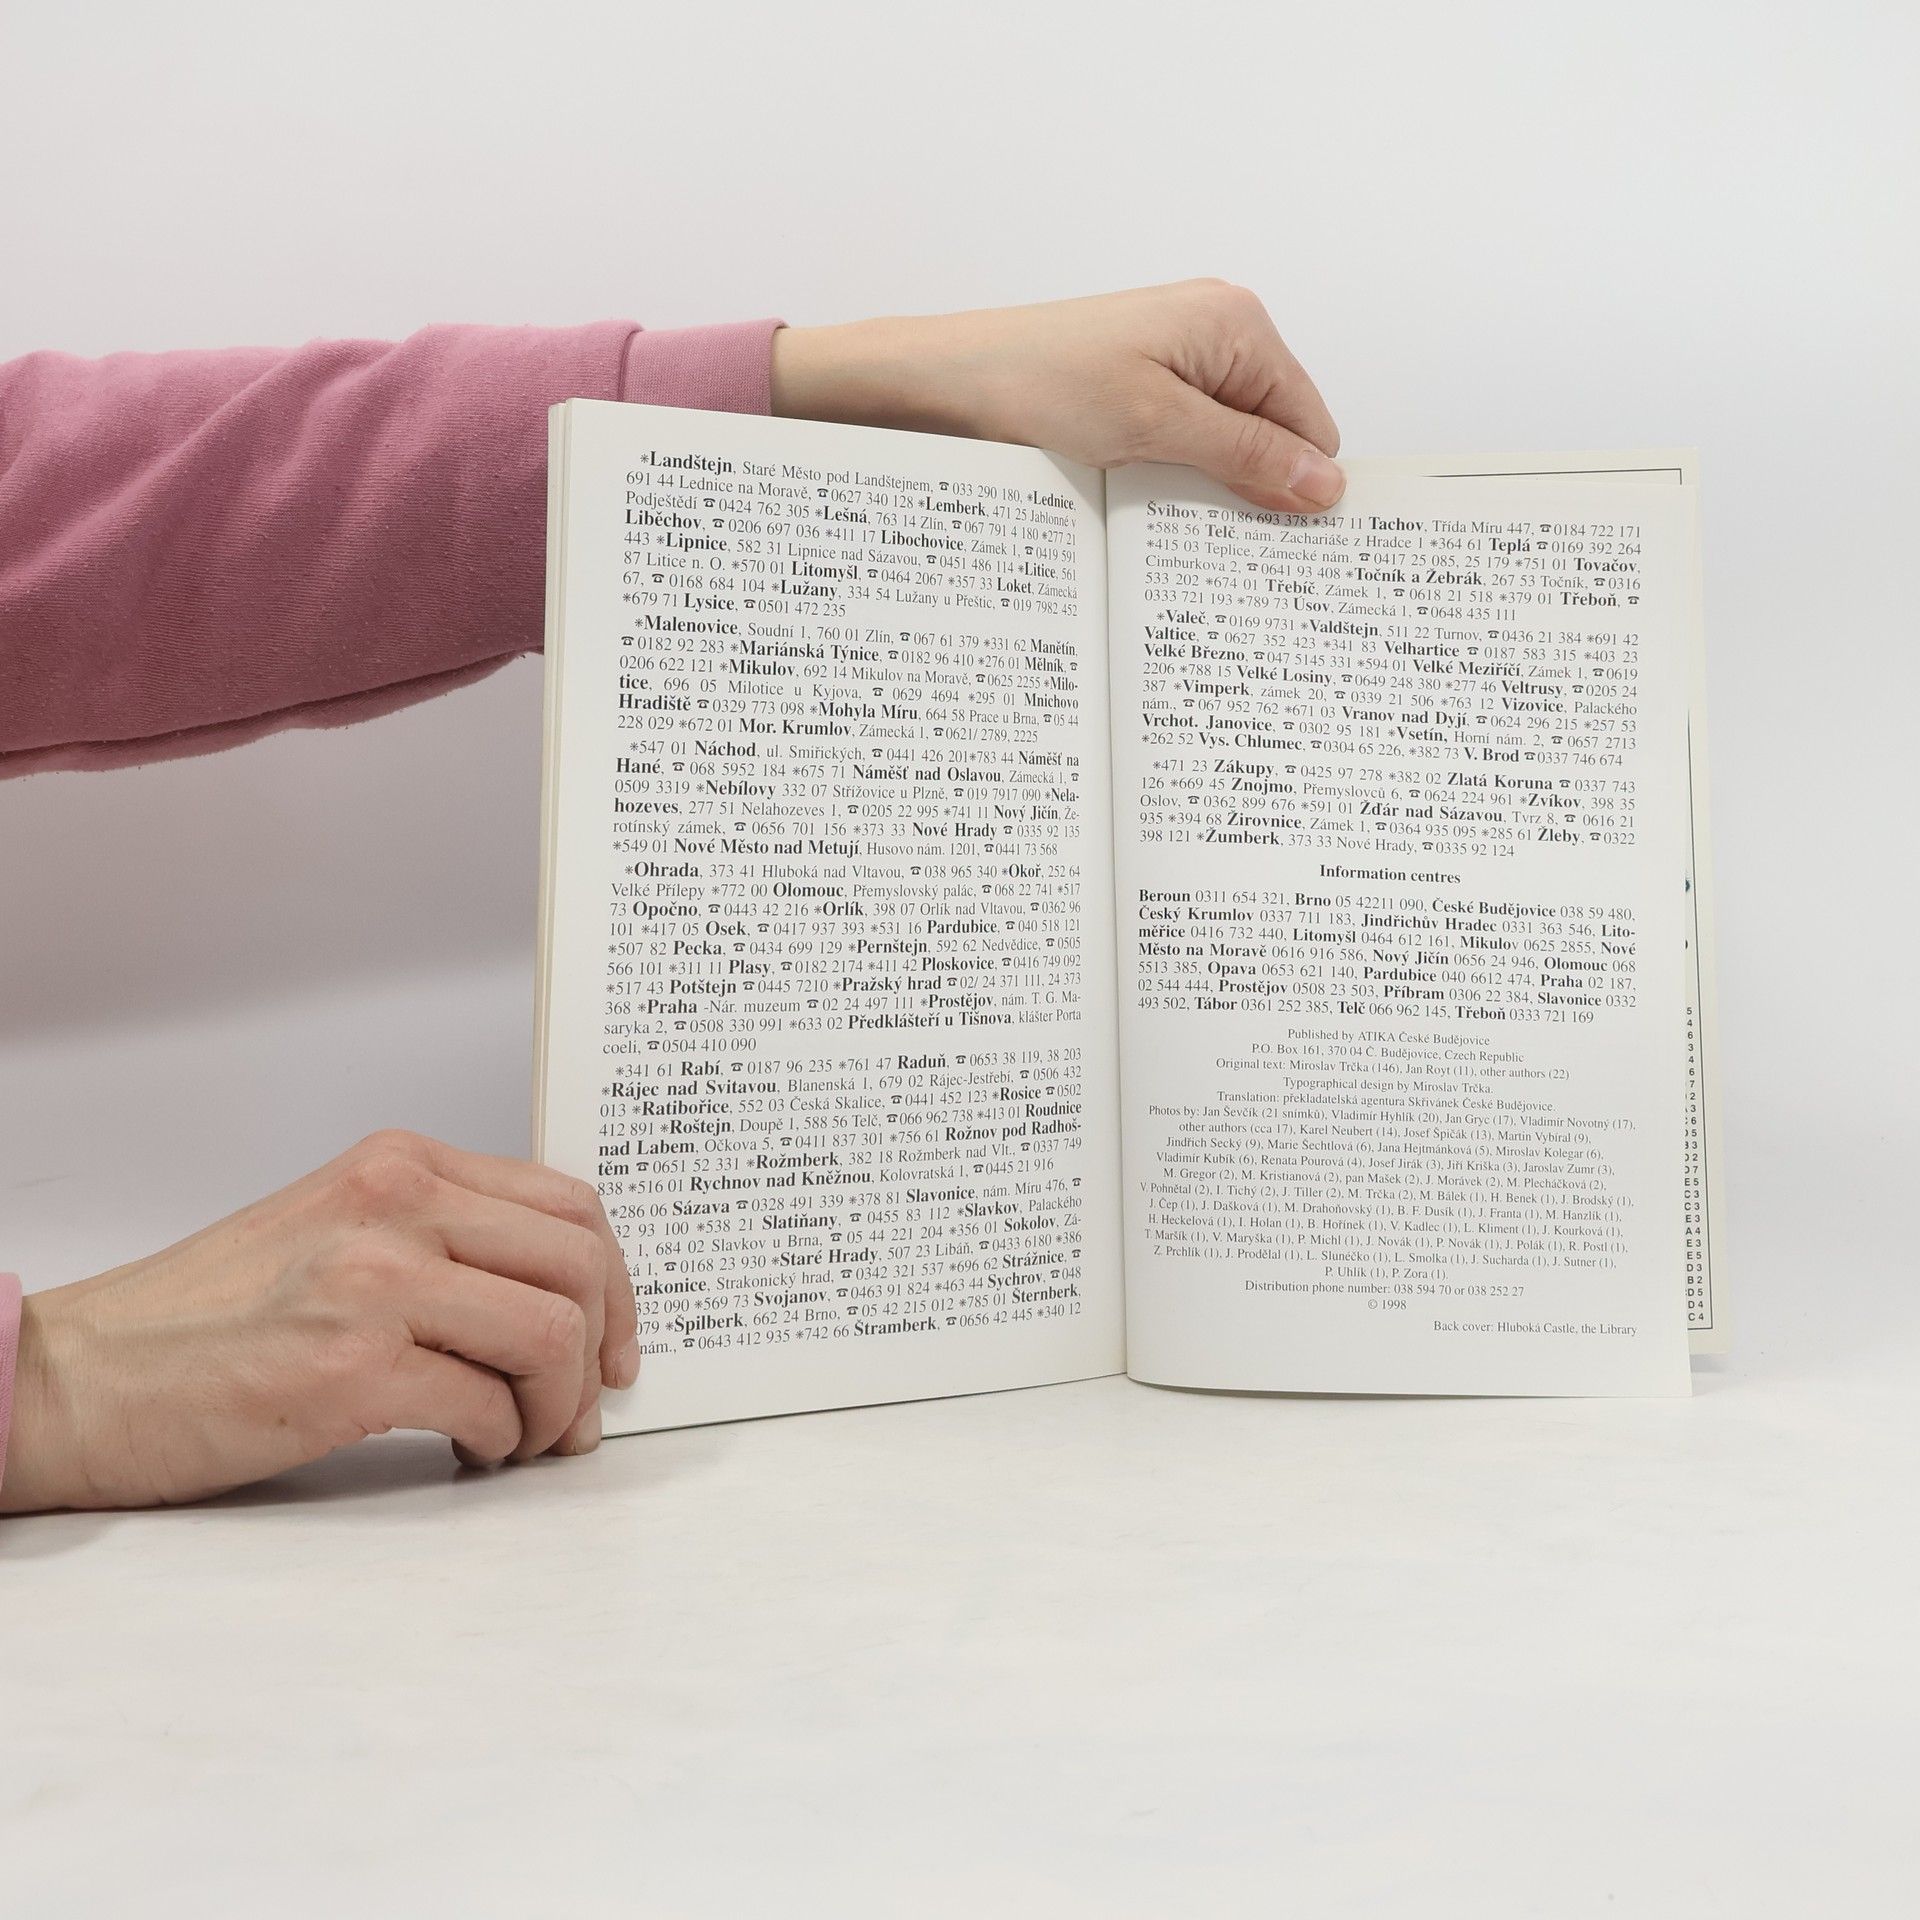 *Landštejn, Staré Město pod Landštejnem, ☎033 290 180, *Lednice,
691 44 Lednice na Moravě, ☎0627 340 128 *Lemberk, 471 25 Jablonné v
Podještědí ☎0424 762 305 *Lešná, 763 14 Zlín, ☎067 791 4 180 *277 21
Liběchov, ☎0206 697 036 *411 17 Libochovice, Zámek 1, ☎0419 591
443 *Lipnice, 582 31 Lipnice nad Sázavou, ☎0451 486 114 *Litice, 561
87 Litice n. O. *570 01 Litomyšl, ☎0464 2067 *357 33 Loket, Zámecká
67, ☎0168 684 104 *Lužany, 334 54 Lužany u Přeštic, ☎019 7982 452
*679 71 Lysice, ☎0501 472 235
*Malenovice, Soudní 1, 760 01 Zlín, ☎067 61 379 *331 62 Manětín,
☎0182 92 283 *Mariánská Týnice, ☎0182 96 410 *276 01 Mělník, ☎
0206 622 121 *Mikulov, 692 14 Mikulov na Moravě, ☎0625 2255 *Milo-
tice, 696 05 Milotice u Kyjova, ☎ 0629 4694 *295 01 Mnichovo
Hradiště ☎0329 773 098 *Mohyla Míru, 664 58 Prace u Brna, ☎05 44
228 029 *672 01 Mor. Krumlov, Zámecká 1, ☎0621/ 2789, 2225
*547 01 Náchod, ul. Smiřických, ☎0441 426 201*783 44 Náměšť na
Hané, ☎ 068 5952 184 *675 71 Náměšť nad Oslavou, Zámecká 1, ☎
0509 3319 *Nebílovy 332 07 Střížovice u Plzně, ☎019 7917 090 *Nela-
hozeves, 277 51 Nelahozeves 1, ☎0205 22 995 *741 11 Nový Jičín, Že-
rotínský zámek, ☎ 0656 701 156 *373 33 Nové Hrady ☎0335 92 135
*549 01 Nové Město nad Metují, Husovo nám. 1201, ☎0441 73 568
*Ohrada, 373 41 Hluboká nad Vltavou, ☎038 965 340 *Okoř, 252 64
Velké Přílepy *772 00 Olomouc, Přemyslovský palác, ☎068 22 741 *517
73 Opočno, ☎0443 42 216 *Orlík, 398 07 Orlík nad Vltavou, ☎0362 96
101 *417 05 Osek, ☎0417 937 393 *531 16 Pardubice, ☎040 518 121
*507 82 Pecka, ☎0434 699 129 *Pernštejn, 592 62 Nedvědice, ☎0505
566 101 *311 11 Plasy, ☎0182 2174 *411 42 Ploskovice, ☎0416 749 092
*517 43 Potštejn ☎0445 7210 *Pražský hrad ☎02/ 24 371 111, 24 373
368 *Praha -Nár. muzeum ☎02 24 497 111 *Prostějov, nám. T. G. Ma-
saryka 2, ☎0508 330 991 *633 02 Předklášteří u Tišnova, klášter Porta
coeli, ☎0504 410 090
*341 61 Rabí, ☎0187 96 235 *761 47 Raduň, ☎0653 38 119, 38 203
*Rájec nad Svitavou, Blanenská 1, 679 02 Rájec-Jestřebí, ☎0506 432
013 *Ratibořice, 552 03 Česká Skalice, ☎0441 452 123 *Rosice ☎0502
412 891 *Roštejn, Doupě 1, 588 56 Telč, ☎066 962 738 *413 01 Roudnice
nad Labem, Očkova 5, ☎0411 837 301 *756 61 Rožnov pod Radhoš-
těm ☎0651 52 331 *Rožmberk, 382 18 Rožmberk nad Vlt., ☎0337 749
838 *516 01 Rychnov nad Kněžnou, Kolovratská 1, ☎0445 21 916
*286 06 Sázava ☎0328 491 339 *378 81 Slavonice, nám. Míru 476, ☎
32 93 100 *538 21 Slatiňany, ☎0455 83 112 *Slavkov, Palackého
1, 684 02 Slavkov u Brna, ☎05 44 221 204 *356 01 Sokolov, Zá-
ká 1, ☎0168 23 930 *Staré Hrady, 507 23 Libáň, ☎0433 6180 *386
rakonice, Strakonický hrad, ☎0342 321 537 *696 62 Strážnice, ☎
332 090 *569 73 Svojanov, ☎0463 91 824 *463 44 Sychrov, ☎048
079 *Špilberk, 662 24 Brno, ☎05 42 215 012 *785 01 Šternberk,
nám., ☎0643 412 935 *742 66 Štramberk, ☎0656 42 445 *340 12
Švihov, ☎0186 693 378 *347 11 Tachov, Třída Míru 447, ☎0184 722 171
*588 56 Telč, nám. Zachariáše z Hradce 1 *364 61 Teplá ☎0169 392 264
*415 03 Teplice, Zámecké nám. ☎0417 25 085, 25 179 *751 01 Tovačov,
Cimburkova 2, ☎0641 93 408 *Točník a Žebrák, 267 53 Točník, ☎0316
533 202 *674 01 Třebíč, Zámek 1, ☎0618 21 518 *379 01 Třeboň, ☎
0333 721 193 *789 73 Úsov, Zámecká 1, ☎0648 435 111
*Valeč, ☎0169 9731 *Valdštejn, 511 22 Turnov, ☎0436 21 384 *691 42
Valtice, ☎ 0627 352 423 *341 83 Velhartice ☎ 0187 583 315 *403 23
Velké Březno, ☎047 5145 331 *594 01 Velké Meziříčí, Zámek 1, ☎0619
2206 *788 15 Velké Losiny, ☎0649 248 380 *277 46 Veltrusy, ☎0205 24
387 *Vimperk, zámek 20, ☎ 0339 21 506 *763 12 Vizovice, Palackého
nám., ☎067 952 762 *671 03 Vranov nad Dyjí, ☎0624 296 215 *257 53
Vrchot. Janovice, ☎0302 95 181 *Vsetín, Horní nám. 2, ☎0657 2713
*262 52 Vys. Chlumec, ☎0304 65 226, *382 73 V. Brod ☎0337 746 674
*471 23 Zákupy, ☎0425 97 278 *382 02 Zlatá Koruna ☎0337 743
126 *669 45 Znojmo, Přemyslovců 6, ☎0624 224 961 *Zvíkov, 398 35
Oslov, ☎0362 899 676 *591 01 Žďár nad Sázavou, Tvrz 8, ☎ 0616 21
935 *394 68 Žirovnice, Zámek 1, ☎0364 935 095 *285 61 Žleby, ☎0322
398 121 *Žumberk, 373 33 Nové Hrady, ☎0335 92 124
Information centres
Beroun 0311 654 321, Brno 05 42211 090, České Budějovice 038 59 480,
Český Krumlov 0337 711 183, Jindřichův Hradec 0331 363 546, Lito-
měřice 0416 732 440, Litomyšl 0464 612 161, Mikulov 0625 2855, Nové
Město na Moravě 0616 916 586, Nový Jičín 0656 24 946, Olomouc 068
5513 385, Opava 0653 621 140, Pardubice 040 6612 474, Praha 02 187,
02 544 444, Prostějov 0508 23 503, Příbram 0306 22 384, Slavonice 0332
493 502, Tábor 0361 252 385, Telč 066 962 145, Třeboň 0333 721 169
Published by ATIKA České Budějovice
P.O. Box 161, 370 04 Č. Budějovice, Czech Republic
Original text: Miroslav Trčka (146), Jan Royt (11), other authors (22)
Typographical design by Miroslav Trčka.
Translation: překladatelská agentura Skřivánek České Budějovice.
Photos by: Jan Ševčík (21 snímků), Vladimír Hyhlík (20), Jan Gryc (17), Vladimír Novotný (17),
other authors (cca 17), Karel Neubert (14), Josef Špičák (13), Martin Vybíral (9),
Jindřich Secký (9), Marie Šechtlová (6), Jana Hejtmánková (5), Miroslav Kolegar (6),
Vladimír Kubík (6), Renata Pourová (4), Josef Jirák (3), Jiří Kriška (3), Jaroslav Zumr (3),
M. Gregor (2), M. Kristianová (2), pan Mašek (2), J. Morávek (2), M. Plecháčková (2),
V. Pohnětal (2), I. Tichý (2), J. Tiller (2), M. Trčka (2), M. Bálek (1), H. Benek (1), J. Brodský (1),
J. Čep (1), J. Dašková (1), M. Drahoňovský (1), B. F. Dusík (1), J. Franta (1), M. Hanzlík (1),
H. Heckelová (1), I. Holan (1), B. Hořínek (1), V. Kadlec (1), L. Kliment (1), J. Kourková (1),
T. Maršík (1), V. Maryška (1), P. Michl (1), J. Novák (1), P. Novák (1), J. Polák (1), R. Postl (1),
Z. Prchlík (1), J. Prodělal (1), L. Slunéčko (1), L. Smolka (1), J. Sucharda (1), J. Sutner (1),
P. Uhlík (1), P. Zora (1).
Distribution phone number: 038 594 70 or 038 252 27
© 1998
Back cover: Hluboká Castle, the Library